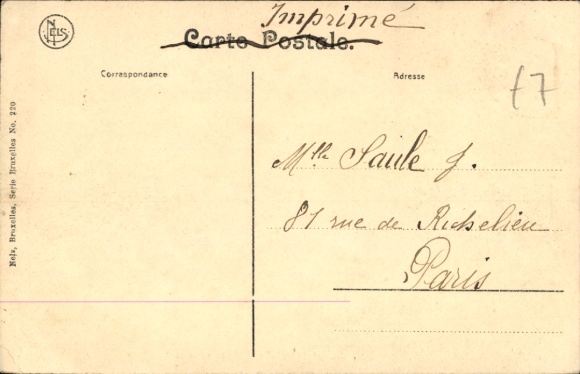 Imprimé
NELS
Carte Postale.
Correspondance
Adresse
£7
Mlle Saule J.
81 rue de Richelieu
Paris
Nels, Bruxelles, Serie Bruxelles No. 220